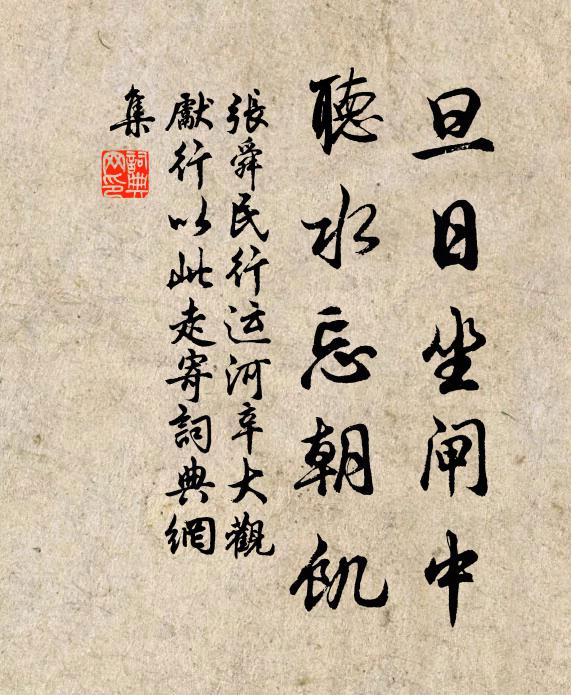 旦日坐闸中
聽水忘朝飢
張舜民行运河辛大觀
獻行以此走寄詞典網
集
詞典
网印